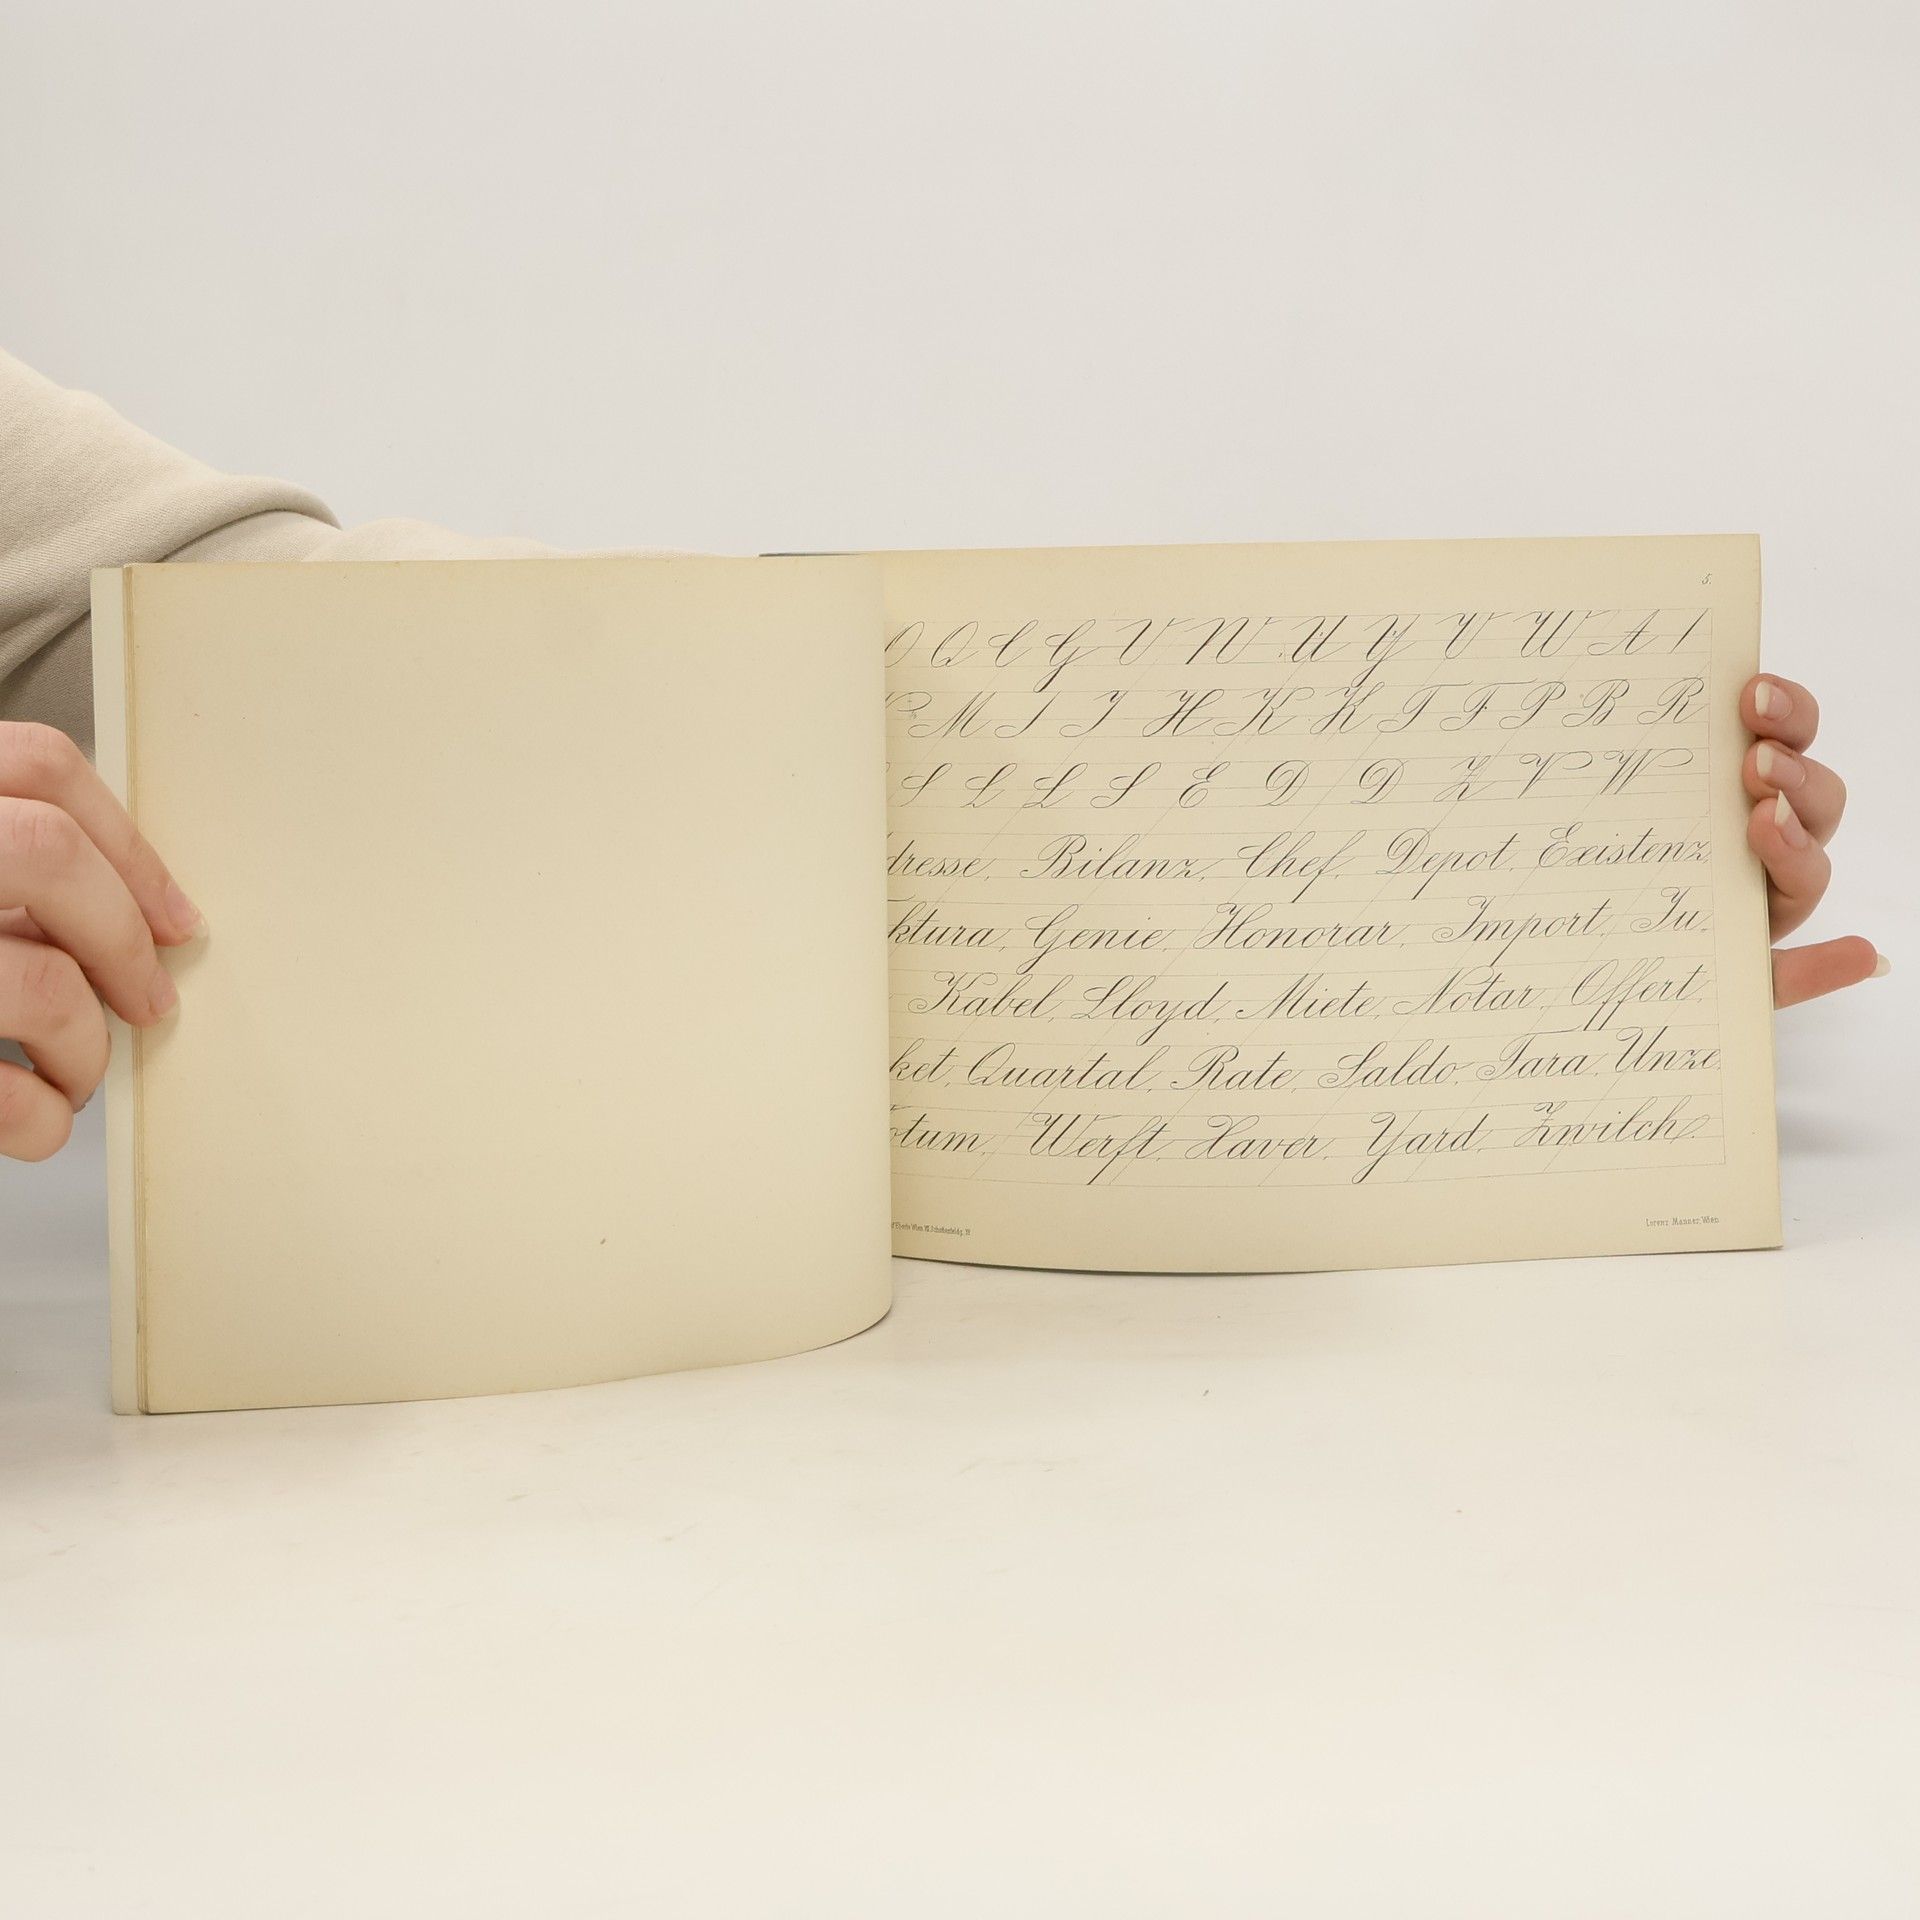 5.
O Q C G V N U Y V W A I
M I J H K K T F P B R
S L L S E D D Z V W
dresse, Bilanz, Chef, Depot, Existenz,
ktura, Genie, Honorar, Import, Ju-
Kabel, Lloyd, Miete, Notar, Offert,
ket, Quartal, Rate, Saldo, Tara, Unze,
otum, Werft, Xaver, Yard, Zwilch.
Eberle Wien VII. Schottenfeldg. Lorenz Manner, Wien